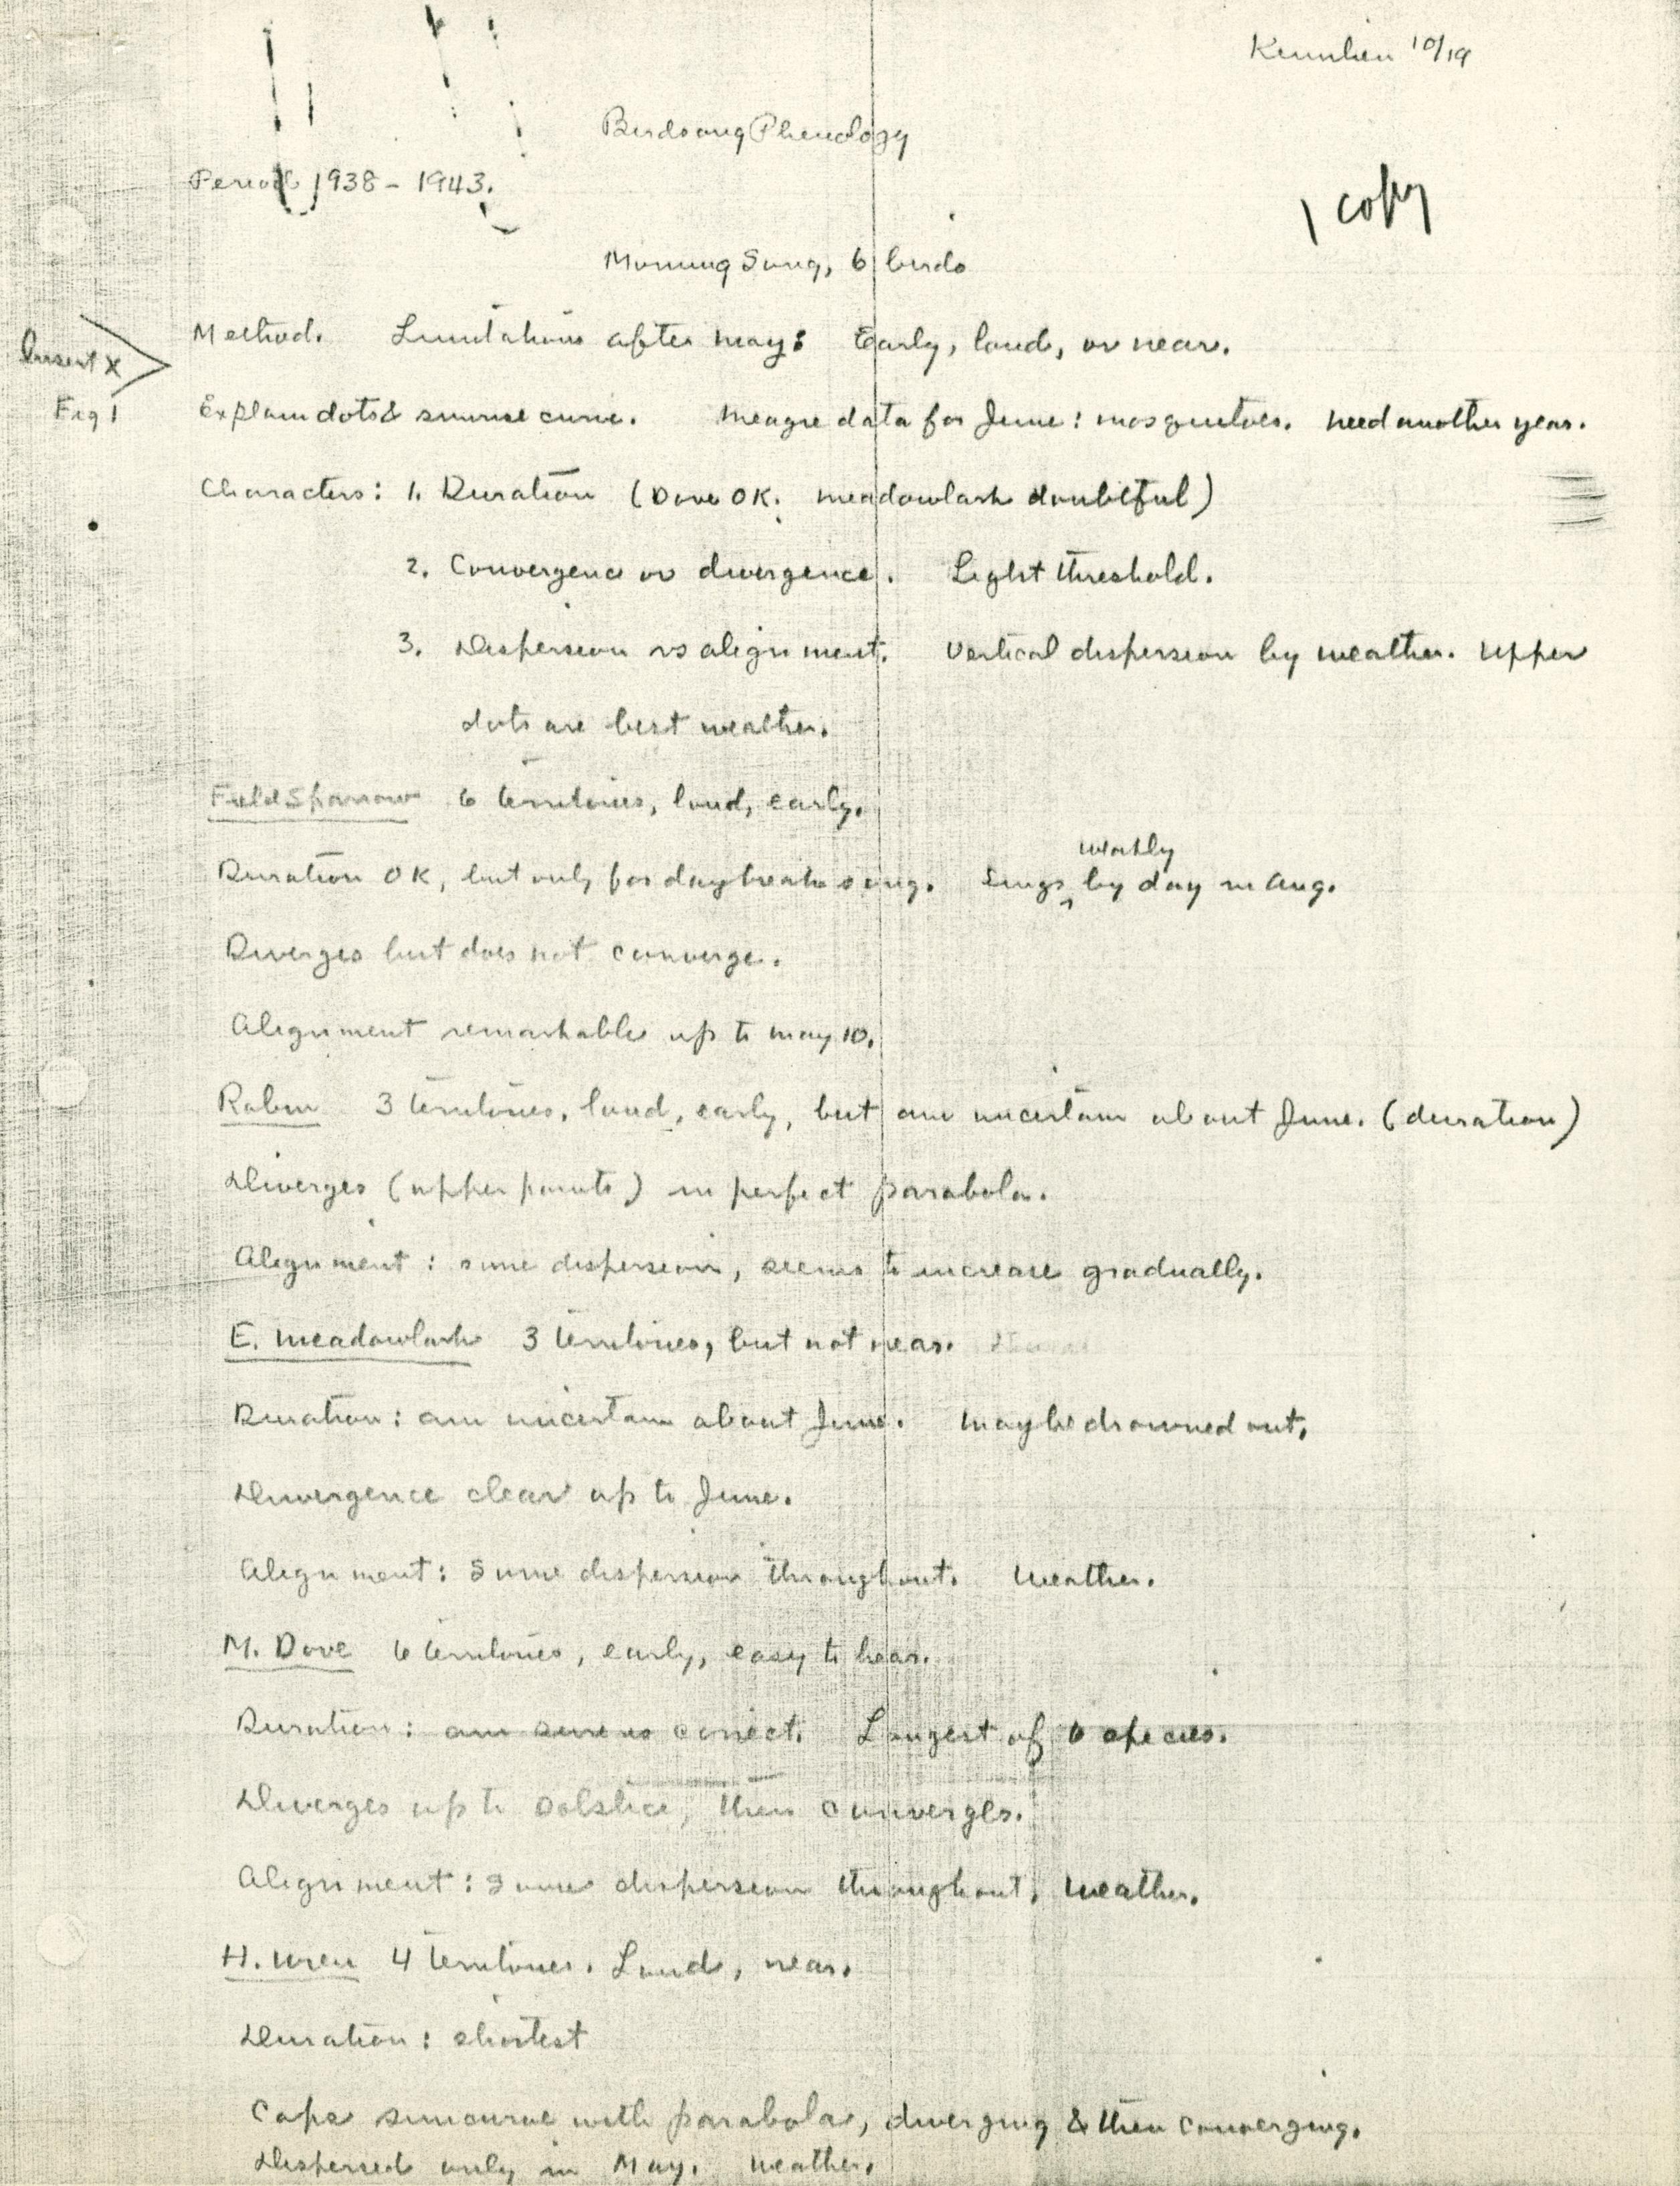 Kumlien 10/19
Birdsong Phenology
Period 1938 - 1943.
1 copy
Morning Song, 6 birds
Insert X
Method. Limitations after May: Early, loud, or near.
Fig 1
Explain dots & sunrise curve. Meagre data for June: mosquitoes. Need another year.
Characters: 1. Duration (Dove OK. Meadowlark doubtful)
2. Convergence or divergence. Light threshold.
3. Dispersion vs alignment. Vertical dispersion by weather. Upper
dots are best weather.
Field Sparrow 6 territories, loud, early.
weakly
Duration OK, but only for daybreak song. Sings ^ by day in Aug.
Diverges but does not converge.
Alignment remarkable up to May 10.
Robin 3 territories, loud, early, but am uncertain about June. (duration)
Diverges (upper points) in perfect parabola.
Alignment: some dispersion, seems to increase gradually.
E. Meadowlark 3 territories, but not near.
Duration: am uncertain about June. May be drowned out.
Divergence clear up to June.
Alignment: Some dispersion throughout. Weather.
M. Dove 6 territories, early, easy to hear.
Duration: am sure is correct. Longest of 6 species.
Diverges up to solstice, then converges.
Alignment: some dispersion throughout. Weather.
H. Wren 4 territories. Loud, near.
Duration: shortest
Caps suncurve with parabola, diverging & then converging.
Dispersed only in May. Weather.